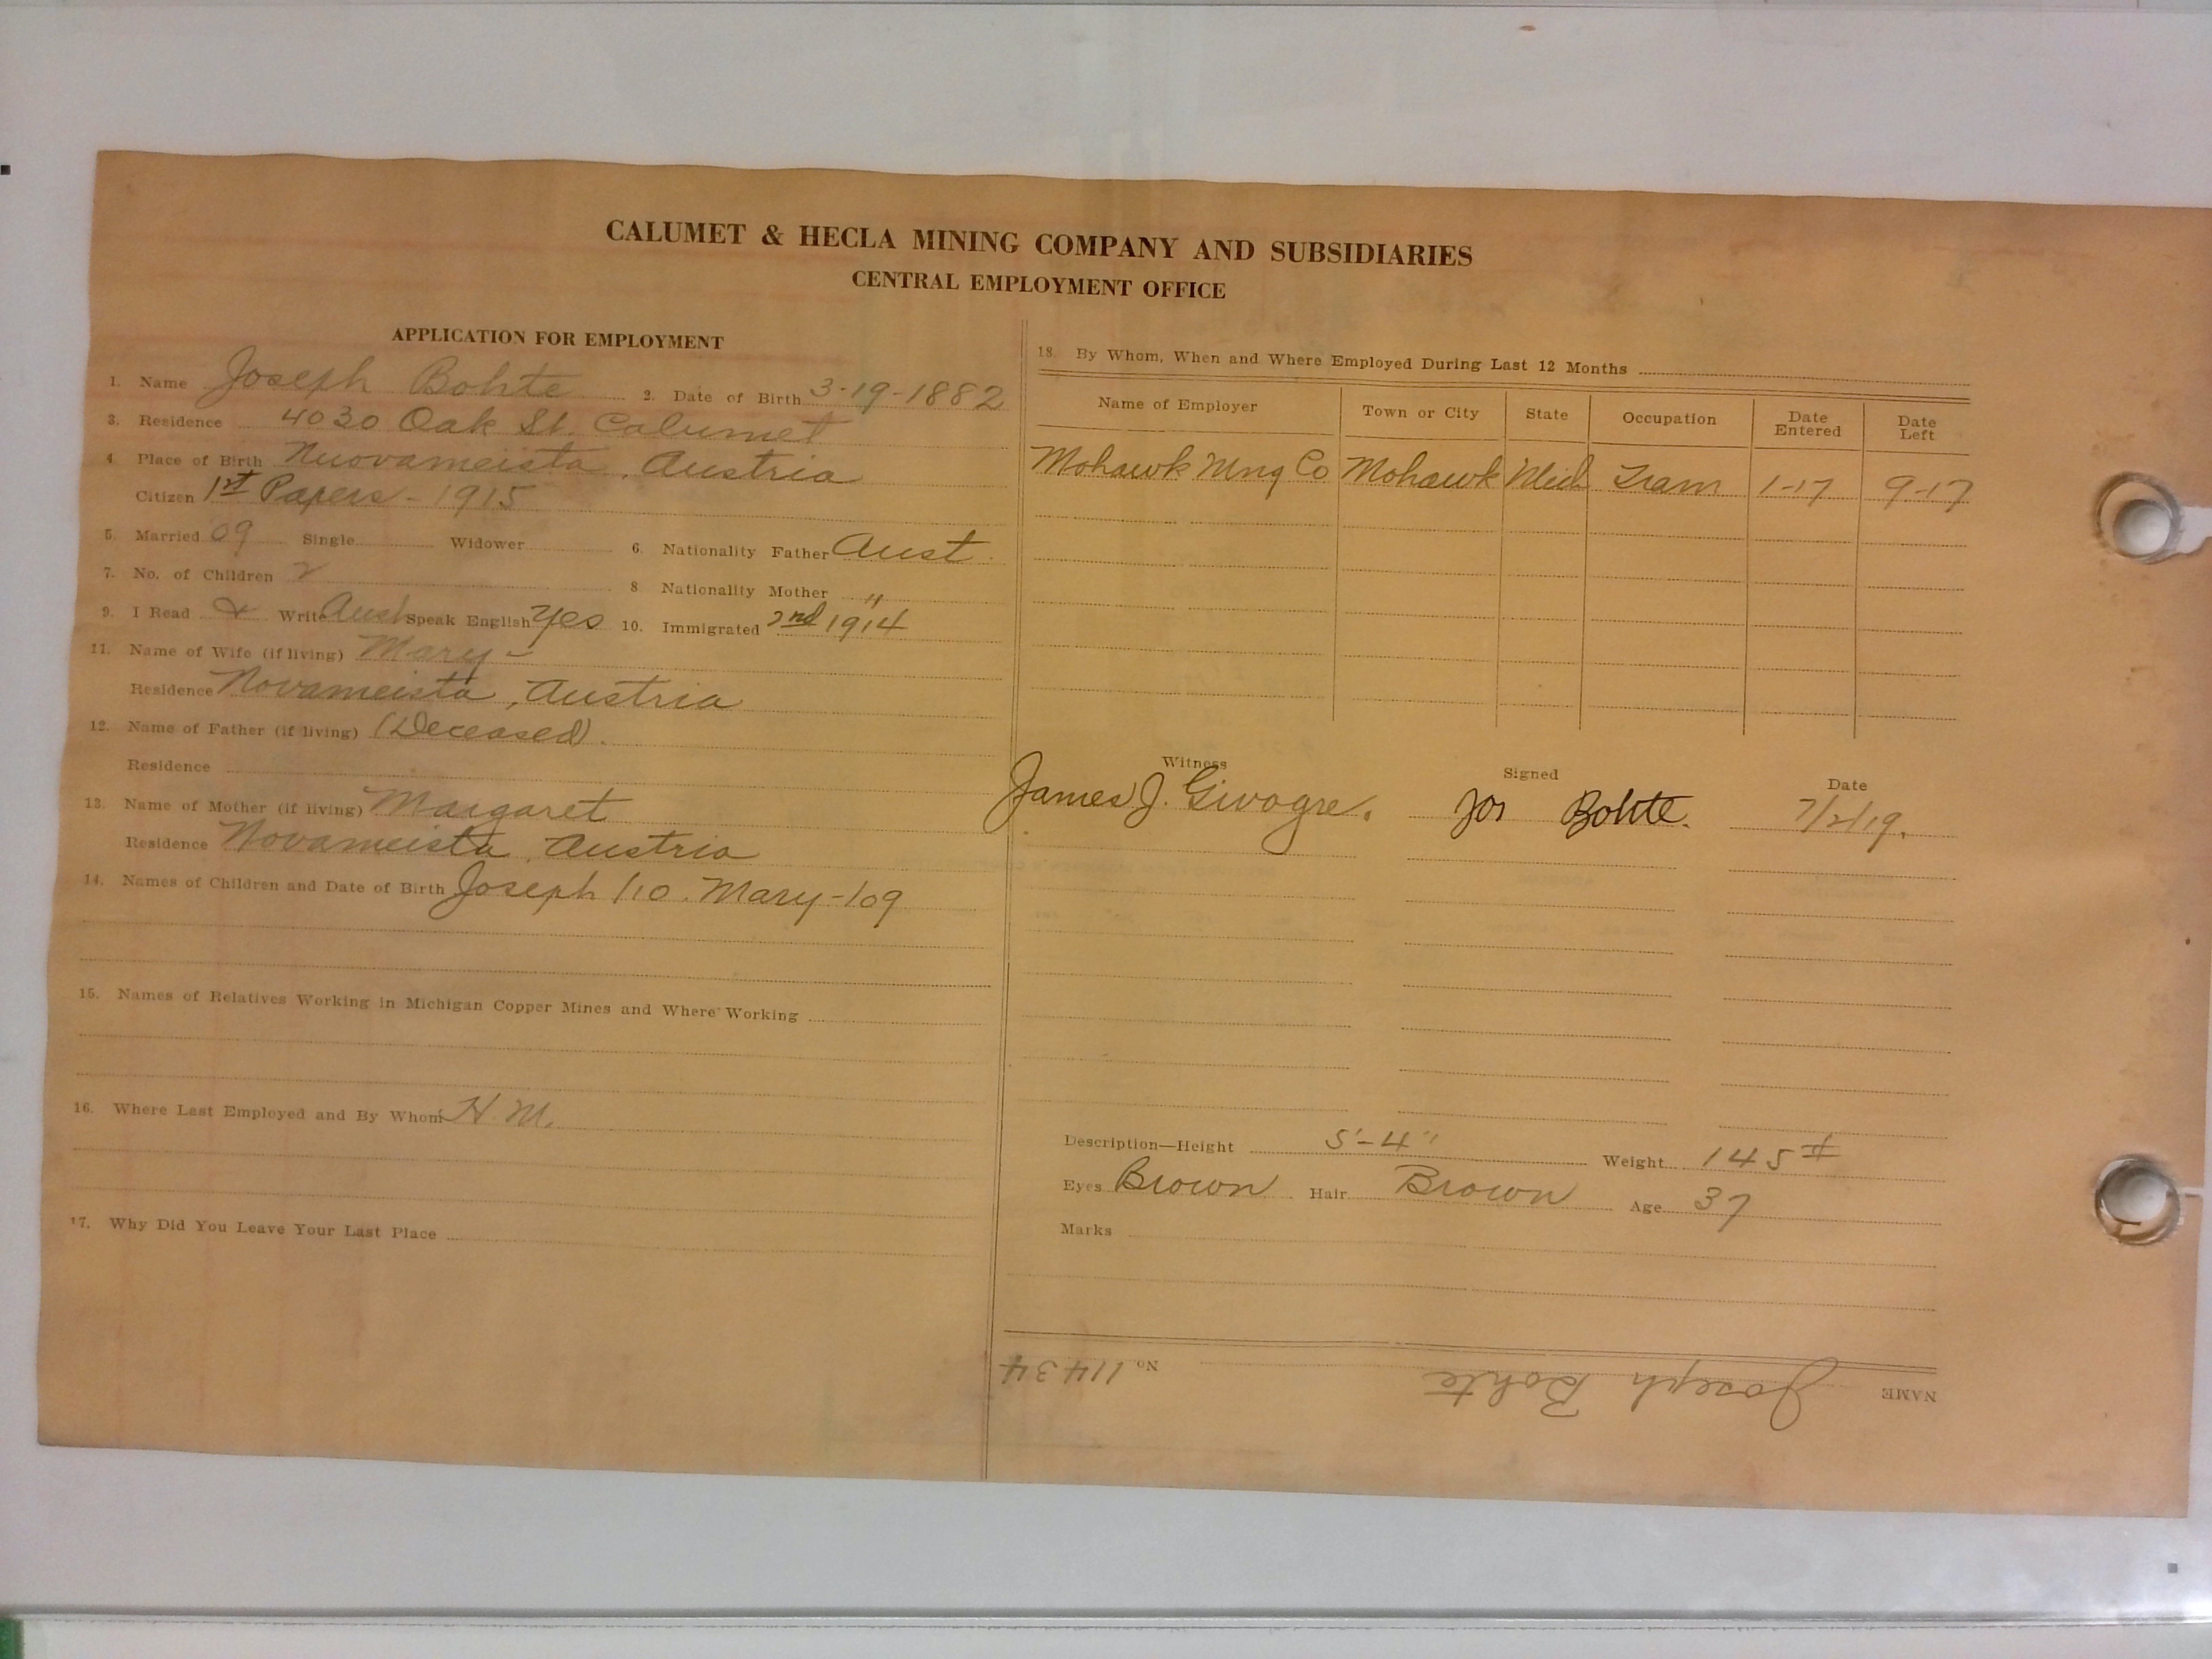 CALUMET & HECLA MINING COMPANY AND SUBSIDIARIES
CENTRAL EMPLOYMENT OFFICE
APPLICATION FOR EMPLOYMENT
1. Name Joseph Bohte 2. Date of Birth 3-19-1882
3. Residence 4030 Oak St. Calumet
4. Place of Birth Nuovameista, Austria
Citizen 1st Papers - 1915
5. Married 09 Single Widower 6. Nationality Father Aust.
7. No. of Children 2 8 Nationality Mother "
9. I Read & Write Aust Speak English Yes 10. Immigrated 2nd 1914
11. Name of Wife (if living) Mary -
Residence Novameista, Austria
12. Name of Father (if living) (Deceased).
Residence
13. Name of Mother (if living) Margaret
Residence Novameista, Austria
14. Names of Children and Date of Birth Joseph /10. Mary-/09
15. Names of Relatives Working in Michigan Copper Mines and Where Working
16. Where Last Employed and By Whom H. M.
17. Why Did You Leave Your Last Place
18. By Whom, When and Where Employed During Last 12 Months
Name of Employer Town or City State Occupation Date Entered Date Left
Mohawk Mng Co Mohawk Mich Tram 1-17 9-17
Witness Signed Date
James J. Jos Bohte. 7/2/19.
Description—Height 5'-4" Weight 145 #
Eyes Brown Hair Brown Age 37
Marks
NAME Joseph Bohte No. 11434